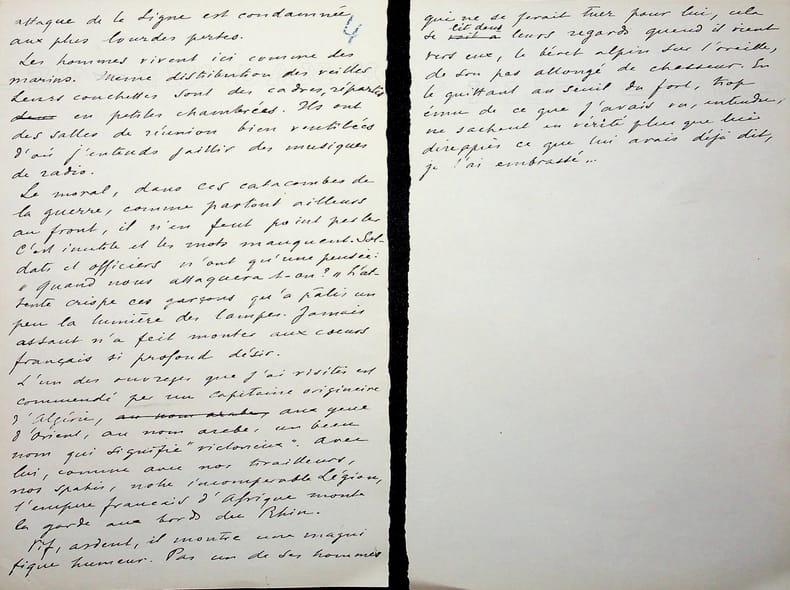 attaque de la Ligne est condamnée
aux plus lourdes pertes.
Les hommes vivent ici comme des
marins. Même distribution des veilles
Leurs couchettes sont des cadres, répartis
en petites chambrées. Ils ont
des salles de réunion bien ventilées
d'où j'entends jaillir des musiques
de radio.
Le moral, dans ces catacombes de
la guerre, comme partout ailleurs
au front, il n'en faut point parler
C'est inutile et les mots manquent. Sol-
dats et officiers n'ont qu'une pensée:
"quand nous attaquera t-on?" L'at-
tente crispe ces garçons qu'a pâlis un
peu la lumière des lampes. Jamais
assaut n'a fait monter aux coeurs
français si profond désir.
L'un des ouvrages que j'ai visités est
commandé par un capitaine originaire
d'Algérie, au nom arabe, aux yeux
d'Orient, au nom arabe, un beau
nom qui signifie "victorieux". Avec
lui, comme avec nos tirailleurs,
nos spahis, notre incomparable Légion,
l'empire français d'Afrique monte
la garde aux bords du Rhin.
Vif, ardent, il montre une magni
fique humeur. Pas un de ses hommes
qui ne se ferait tuer pour lui, cela
se lit dans leurs regards quand il vient
vers eux, le béret alpin sur l'oreille,
de son pas allongé de chasseur. En
le quittant au seuil du fort, trop
ému de ce que j'avais vu, entendu,
ne sachant en vérité plus que lui
dire après ce que lui avais déjà dit,
je l'ai embrassé...